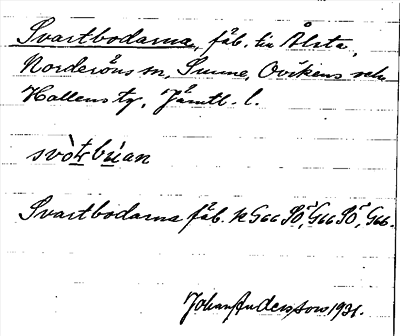 Svartbodarna, fäb. till Ålsta,
Norderöns sn, Sunne, Ovikens och
Hallens tg, Jämtl. l.
svòtbúan
Svartbodarna fäb. k G66 SÖ, G66 SÖ, G66.
Johan Andersson 1931.